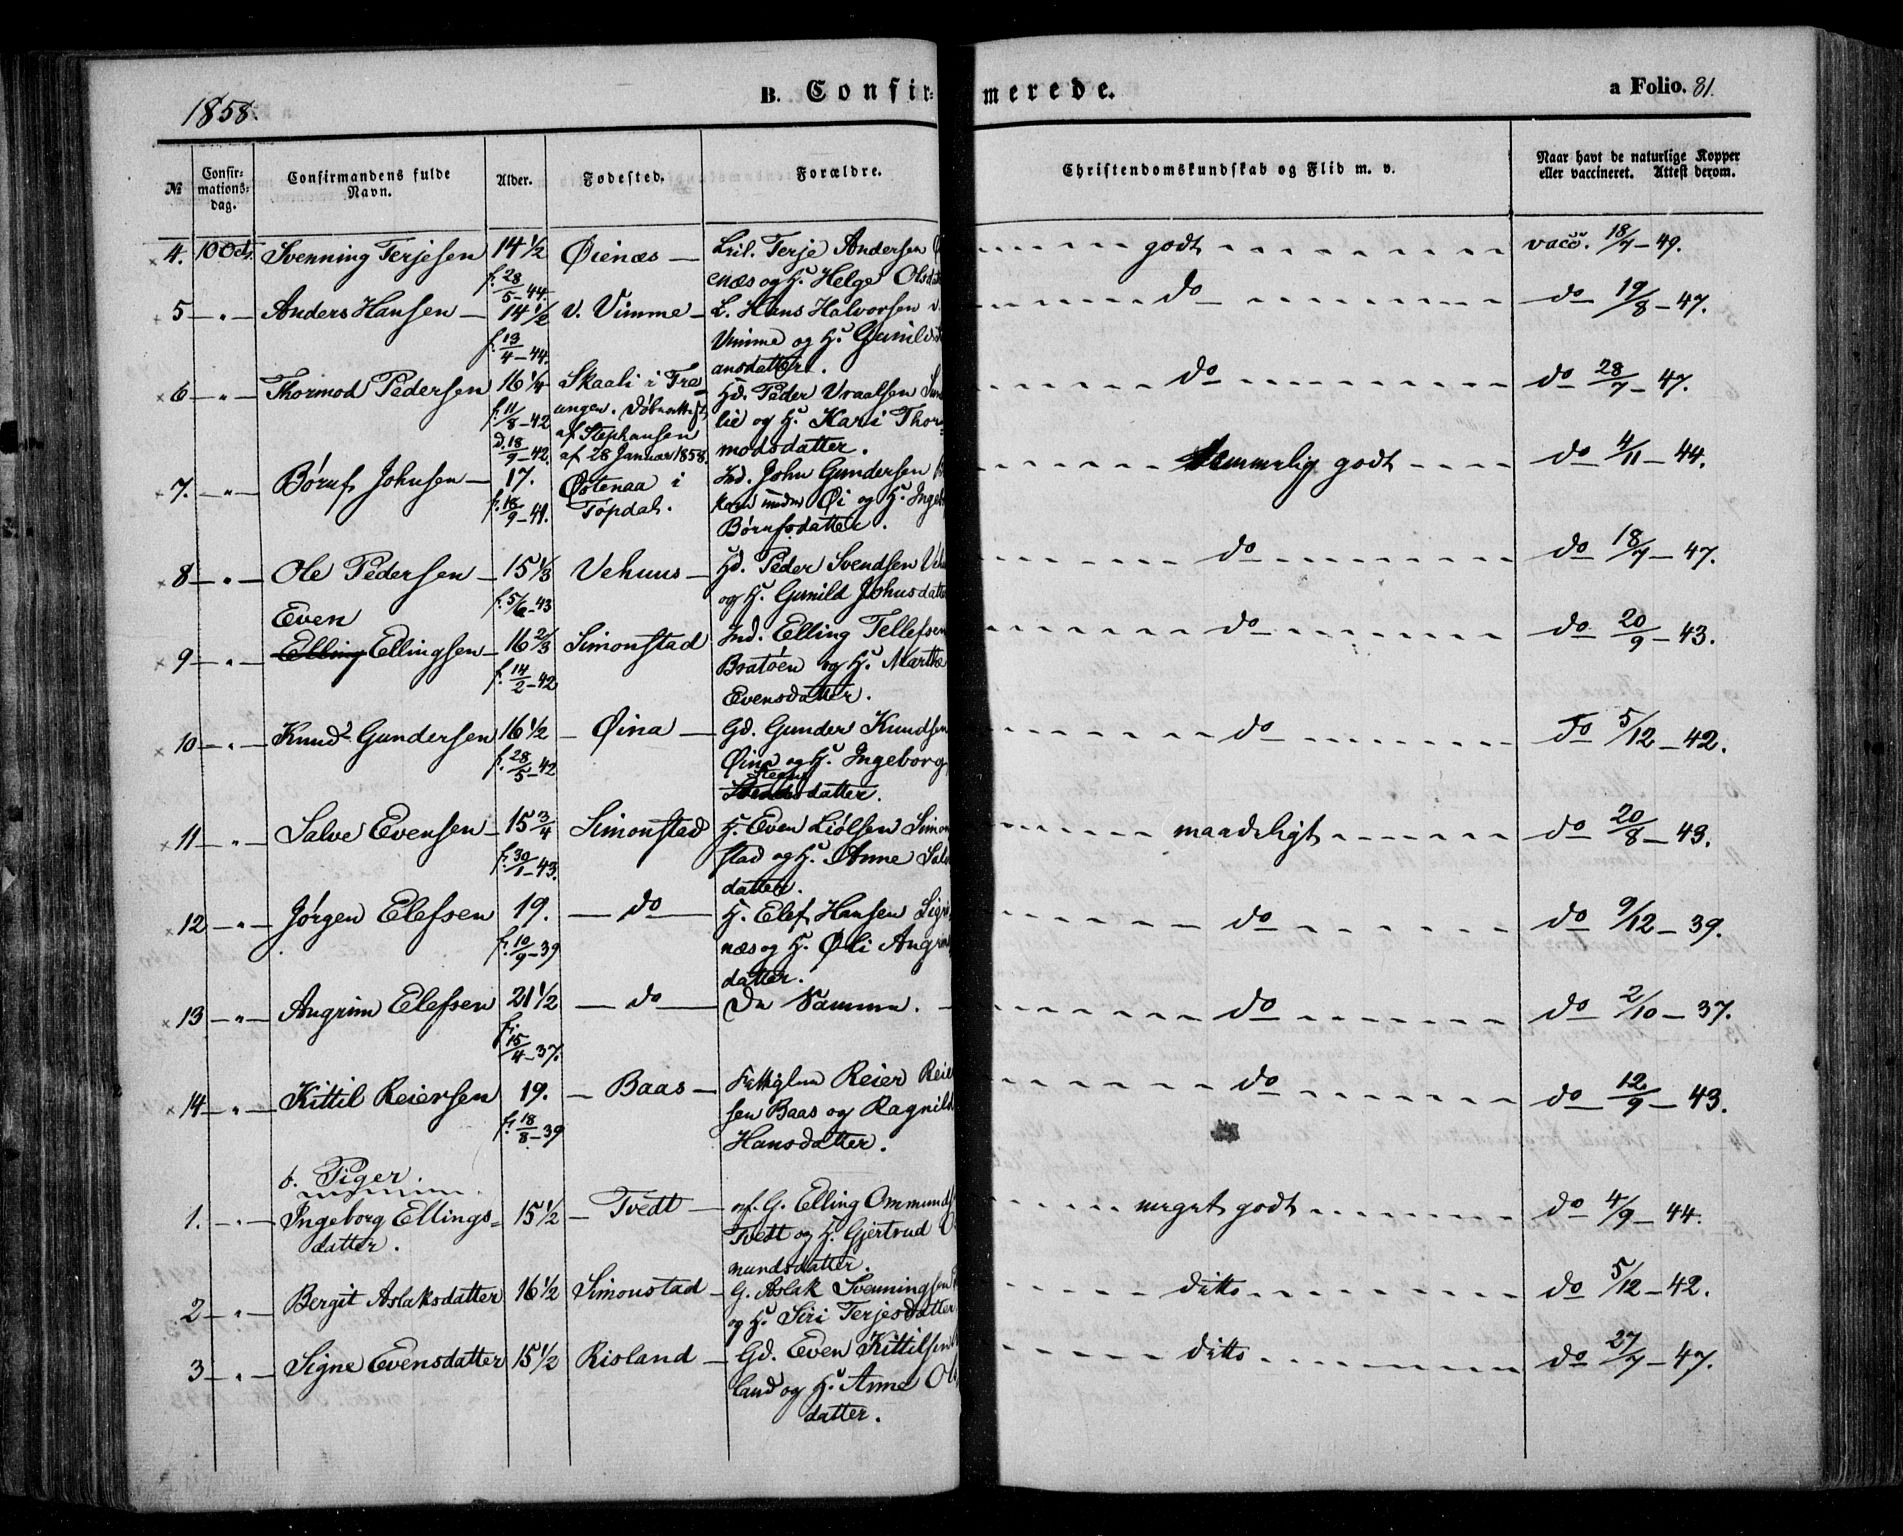 1858.
B. Confir-
merede.
a Folio. 81.
№
Confir-
mations-
dag.
Confirmandens fulde
Navn.
Alder.
Fødested.
Forældre.
Christendomskundskab og Flid m. v.
Naar havt de naturlige Kopper
eller vaccineret. Attest derom.
4. 10 Oct. Svenning Terjesen 14 1/2 Øienæs — Terje Andersen
godt
vacc. 18/7 — 49.
f. 28/5 — 44.
næs og H. Helge Olsdat
5 — " — Anders Hansen — 14 1/2 v. Vimme — L. Hans Halvorsen v.
do
do 19/8 — 47.
f. 13/4 — 44.
Vimme og H. Gunild
ansdatter.
6 — " — Thormod Pedersen 16 1/4 Skaali i Tra
Hd. Peder Vraalsen
do
do 28/7 — 47.
f. 11/8 — 42
ungen. Døbeattest
lie og H. Kari Thor-
d. 18/9 — 42.
af Stephansen
af 28 Januar 1858.
modsdatter.
7. — " — Børuf Johnsen — 17. Østenaa i
Ind. John Gundersen
temmelig godt
do 4/11 — 44.
f. 18/9 — 41.
Topdal.
Øi og H. Inge
Børufsdatter.
8 — " — Ole Pedersen — 15 1/3 Vehuus — Hd. Peder Svendsen
do
do 18/7 — 47.
f. 5/6 — 43
og H. Gunild Johnsdatte
Even
9 — " — Elling Ellingsen — 16 2/3 Simonstad
Ind. Elling Tellefsen
do
do 20/9 — 43.
f. 14/2 — 42
Bratøen og H. Marthe
Evensdatter.
10 — " — Knud Gundersen 16 1/2 — Øina — Gd. Gunder Knudsen
do
do 5/12 — 42.
f. 28/5 — 42
Øina og H. Ingeborg
datter.
11 — " — Salve Evensen — 15 3/4 Simonstad
H. Even Liølsen Simon
maadeligt
do 20/8 — 43.
f. 30/1 — 43.
stad og H. Anne Salv
datter.
12 — " — Jørgen Elefsen 19. — do — H. Elef Hansen Sigri
do
do 9/12 — 39.
f. 10/9 — 39
næs og H. Øli Angrim
datter.
13 — " — Angrim Elefsen 21 1/2 — do — De Samme. —
do
do 2/10 — 37.
f. 15/4 — 37.
14 — " — Kittil Reiersen 19. — Baas — Reier Reier
do
do 12/9 — 43.
f. 18/8 — 39
sen Baas og Ragnild
Hansdatter.
b. Piger.
1. — " — Ingeborg Ellings- 15 1/2 — Tvedt — G. Elling Ommunds
meget godt
do 4/9 — 44.
datter.
Tvedt og H. Gjertrud
mundsdatter.
2 — " — Bergit Aslaksdatter 16 1/2 Simonstad — G. Aslak Svenningsen
ditto
do 5/12 — 42.
og H. Siri Terjesdatter
3 — " — Signe Evensdatter 15 1/2 Risland — Gd. Even Kittilsen
ditto
do 27/7 — 47.
land og H. Anne Ols
datter.